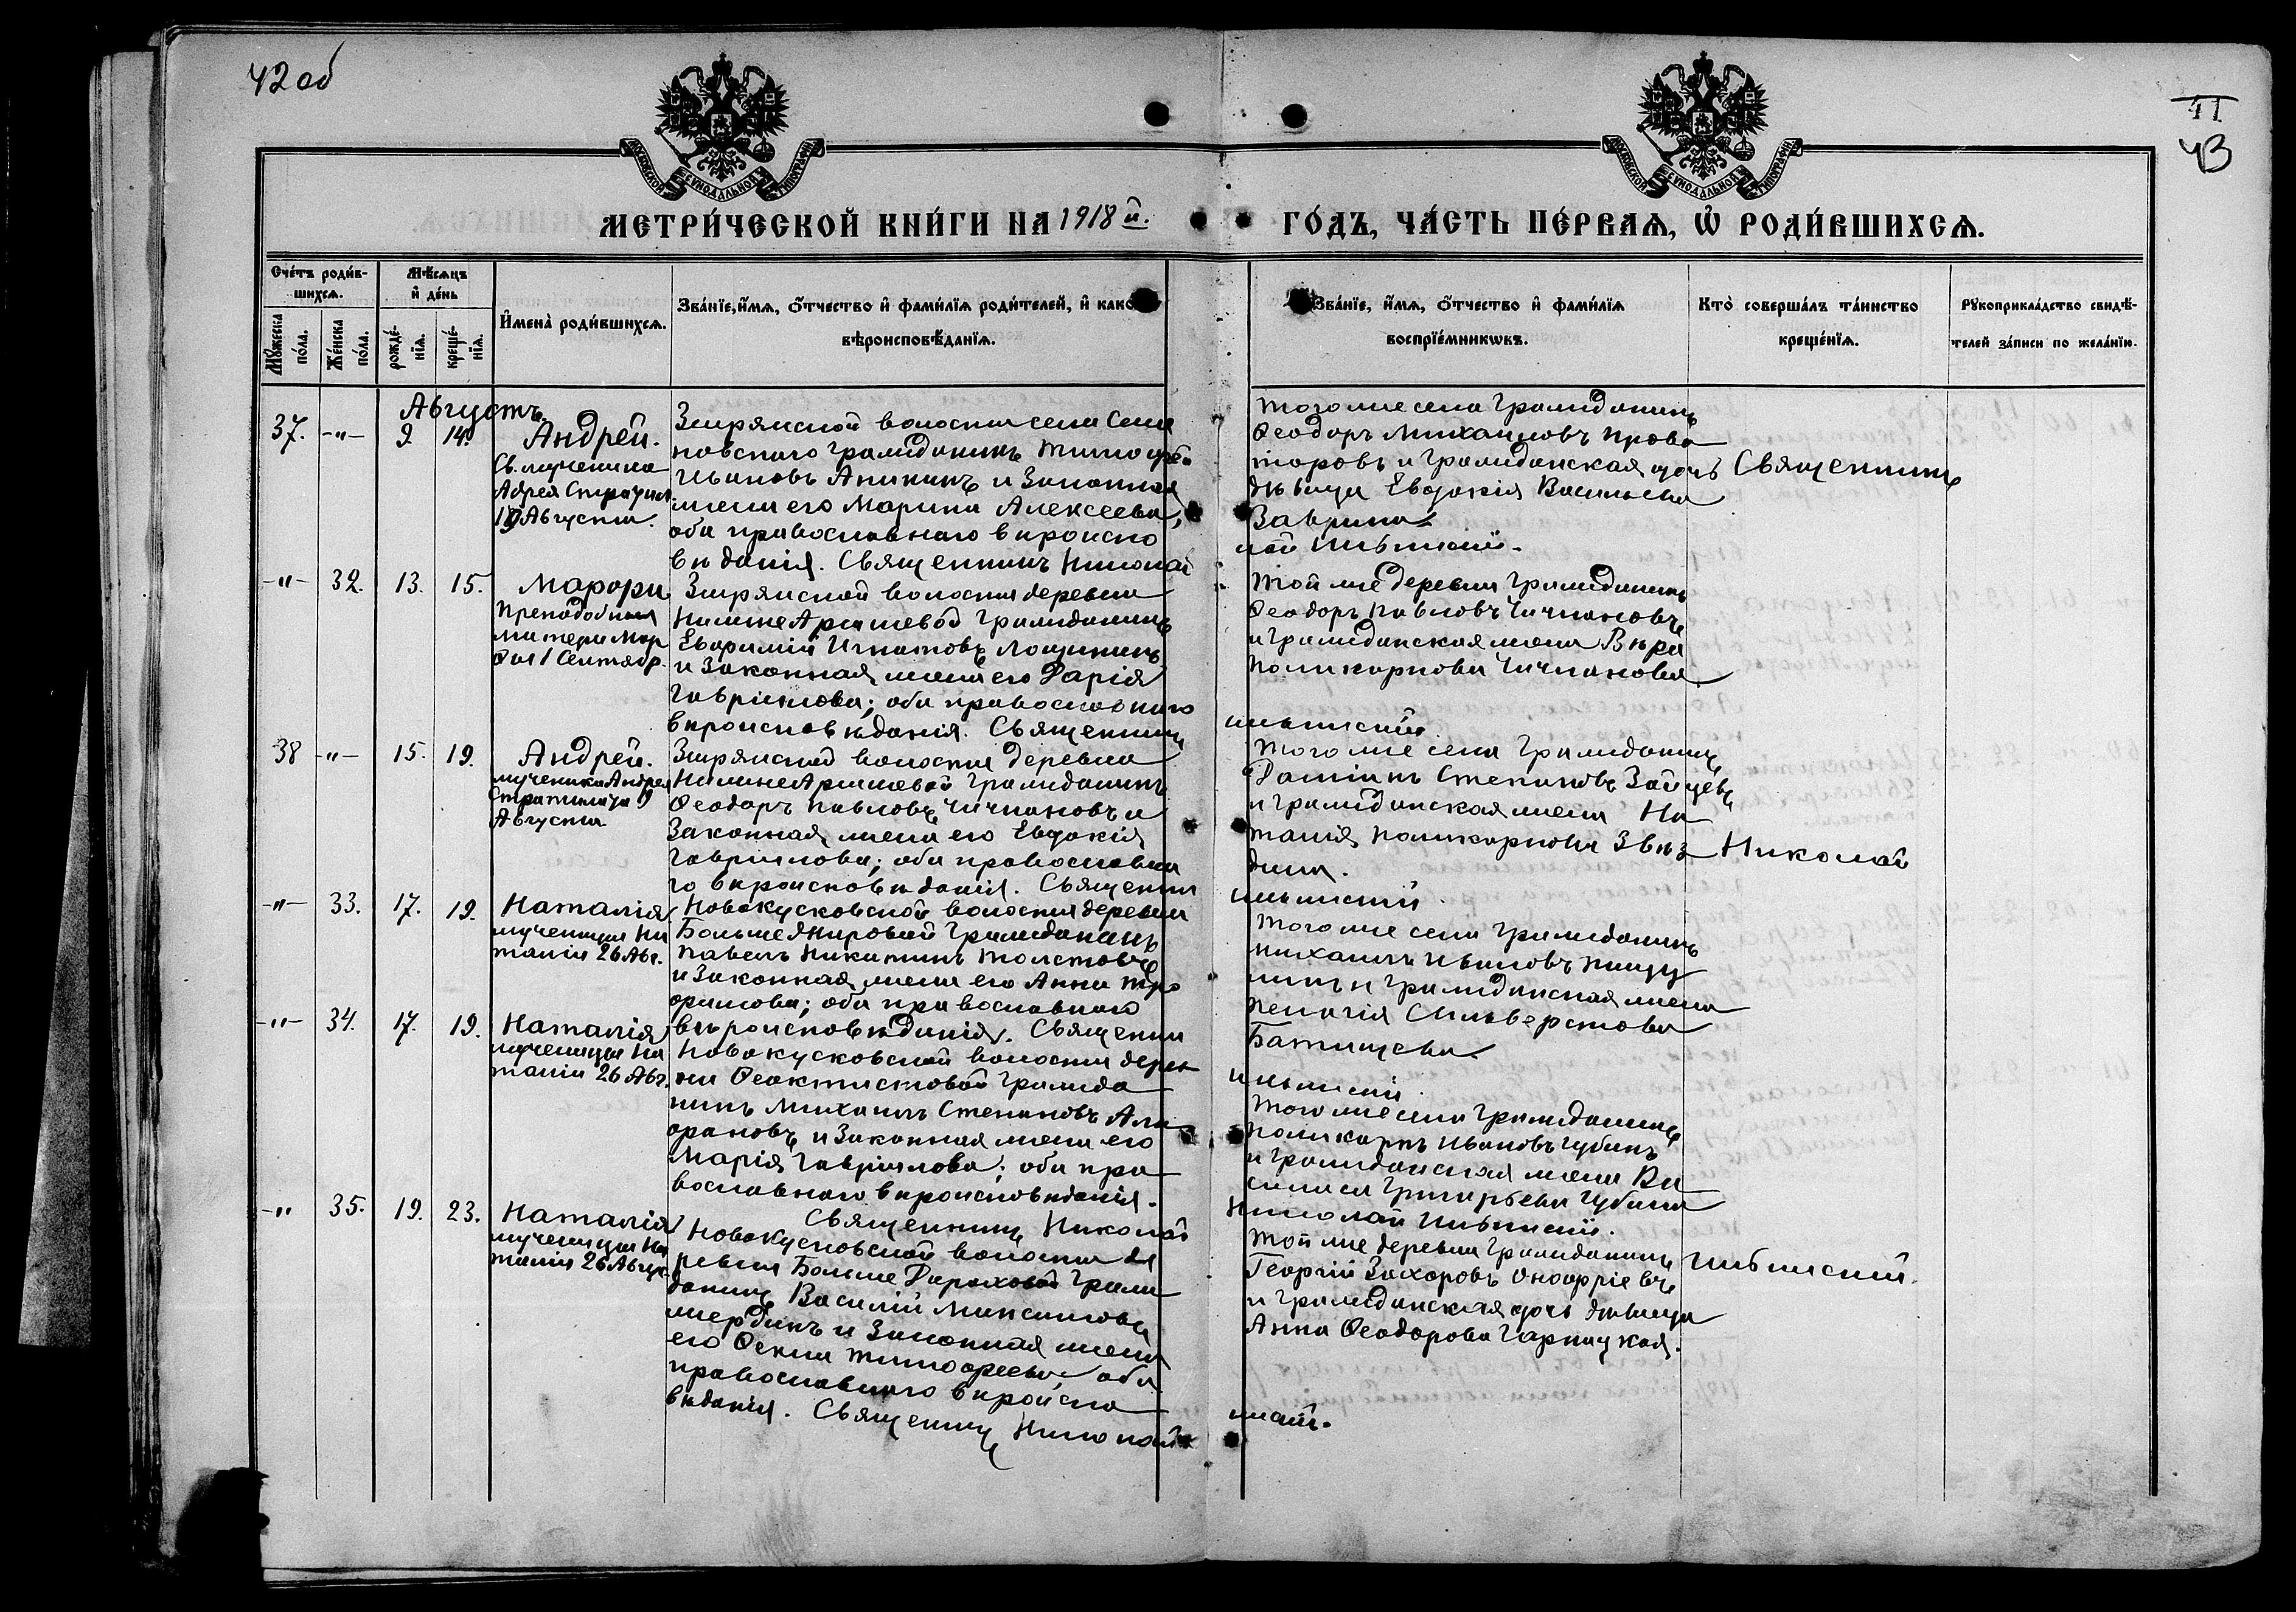 42 об
41
43
МОСКОВСКОЙ СѴНОДАЛЬНОЙ ТИПОГРАФІИ
МОСКОВСКОЙ СѴНОДАЛЬНОЙ ТИПОГРАФІИ
МЕТРИ́ЧЕСКОЙ КНИ́ГИ НА 1918 й.
ГО́ДЪ, ЧА́СТЬ ПЕ́РВАѦ, Ѡ҆ РОДИ́ВШИХСѦ.
Сче́тъ роди́в-
шихсѧ.
Мꙋ́жеска по́ла.
Же́нска по́ла.
Мѣ́сѧцъ
и҆ де́нь
рожде́-нїѧ.
креще́-нїѧ.
И҆мена̀ роди́вшихсѧ.
Зва́нїе, и҆́мѧ, ѻ҆́тчество и҆ фами́лїѧ роди́телей, и҆ како
вѣроисповѣ́данїѧ.
Зва́нїе, и҆́мѧ, ѻ҆́тчество и҆ фами́лїѧ
воспрїе́мникѡвъ.
Кто̀ соверша́лъ та́инство
креще́нїѧ.
Рꙋкоприкла́дство свидѣ́-
телей за́писи по жела́нїю.
Августъ
37. -"- 9. 14.
Андрей.
Св. мученика
Адрея Стратил
19 Августа.
Зырянской волости села Семе
новскаго гражданинъ Тимофей
Ивановъ Аникинъ и законная
жена его Марина Алексеева,
оба православнаго вѣроиспо
вѣданія. Священникъ Николай
Того же села гражданинъ
Ѳеодоръ Михаиловъ Прово
торовъ и гражданская дочь
дѣвица Евдокія Васильева
Заврина
Священникъ
-"- 32. 13. 15.
Марфи
Преподобная
матери Мар
ѳы 1 Сентябр.
Зырянской волости деревни
Нижне Арышевой гражданинъ
Евфимій Игнатовъ Лощинин
и законная жена его Дарія
Гавріилова; оба православнаго
вѣроисповѣданія. Священникъ
Той же деревни гражданинъ
Ѳеодоръ Павловъ Чичкановъ
и гражданская жена Вѣра
Поликарпова Чичканова
38 -"- 15. 19.
Андрей.
мученика Андрея
Стратилата 19
Августа
Зырянской волости деревни
Нижне Арышевой гражданинъ
Ѳеодоръ Павловъ Чичкановъ и
законная жена его Евдокія
Гавриилова; оба православна
го вѣроисповѣданія. Священни
Того же села гражданинъ
Даміанъ Степановъ Зайцевъ
и гражданская жена На
талія Поликарпова Звѣз
дина.
Николай
-"- 33. 17. 19.
Наталія
мученицы На
таліи 26 Авг.
Новокусковской волости деревни
Больше Жировой гражданинъ
Павелъ Никитинъ Толстовъ
и законная жена его Анна Тро
фимова; оба православнаго
вѣроисповѣданія. Священни
Того же села гражданинъ
Михаилъ Ивановъ
и гражданская жена
Пелагія Сильверстова
Батищева
-"- 34. 17. 19.
Наталія
мученицы На
таліи 26 Авг.
Новокусковской волости дерев
ни Ѳеоктистовой гражда
нинъ Михаилъ Степановъ Ага
фоновъ и законная жена его
Марія Гавріилова; оба пра
вославнаго вѣроисповѣданія.
Священникъ Николай
Того же села гражданинъ
Поликарпъ Ивановъ Губинъ
и гражданская жена Ва
силиса Григорьева Губина
-"- 35. 19. 23.
Наталія
мученицы На
таліи 26 Август.
Новокусковской волости де
ревни Больше Дороховой граж
данинъ Василій Максимовъ
и законная жена
его Ѳекла Тимофеева, оба
православнаго вѣроиспо
вѣданія. Священникъ Николай
Той же деревни гражданинъ
Георгій Захаровъ Онофріевъ
и гражданская дочь дѣвица
Анна Ѳеодорова Гарницкая.